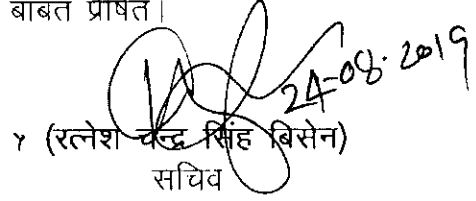 बाबत प्रेषित।
24-08-2019
(रत्नेश चन्द्र सिंह बिसेन)
सचिव